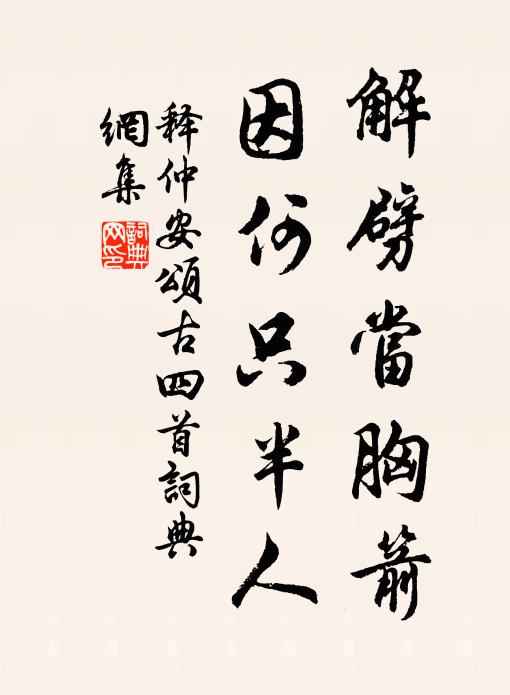 解劈當胸箭
因何只半人
释仲安頌古四首詞典
網集
詞典
网印